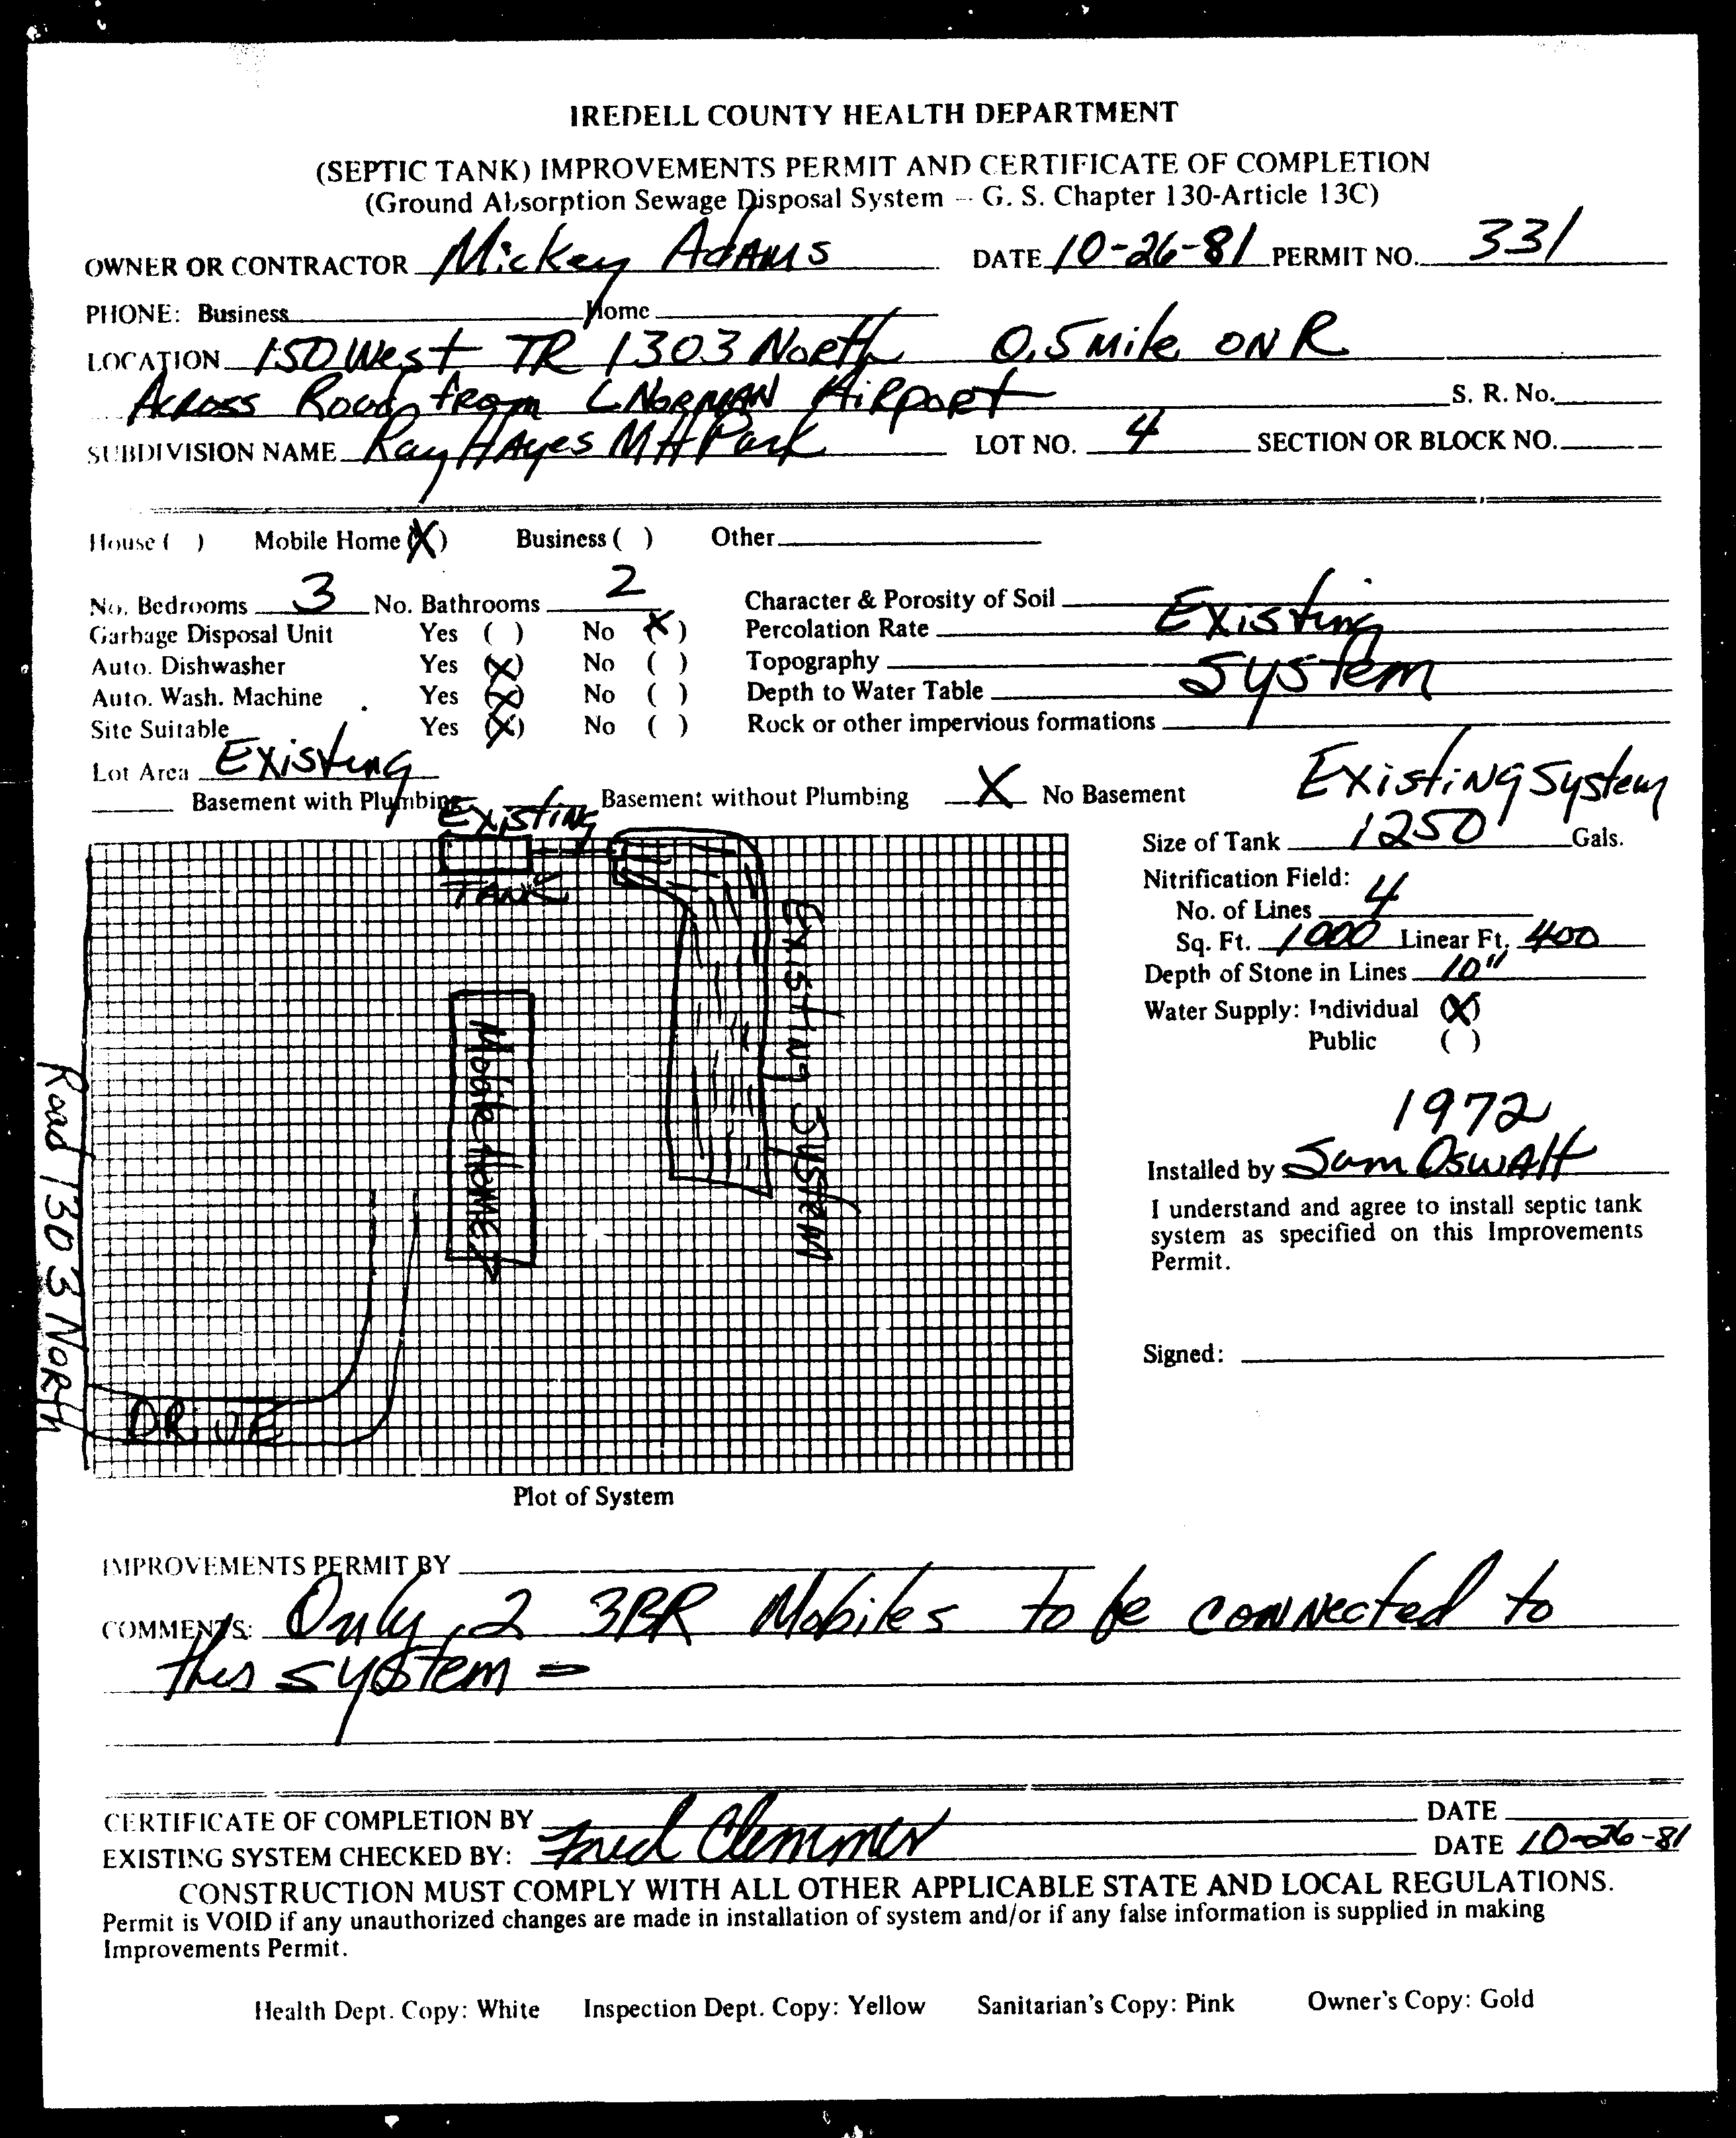 IREDELL COUNTY HEALTH DEPARTMENT
(SEPTIC TANK) IMPROVEMENTS PERMIT AND CERTIFICATE OF COMPLETION
(Ground Absorption Sewage Disposal System -- G. S. Chapter 130-Article 13C)
OWNER OR CONTRACTOR Mickey Adams DATE 10-26-81 PERMIT NO. 331
PHONE: Business Home
LOCATION 150 West TR 1303 North 0.5 Mile ON R
Across Road from L NORMAN AiRport S. R. No.
SUBDIVISION NAME Ray HAyes M H Park LOT NO. 4 SECTION OR BLOCK NO.
House ( ) Mobile Home (X) Business ( ) Other
No. Bedrooms 3 No. Bathrooms 2 Character & Porosity of Soil Existing
Garbage Disposal Unit Yes ( ) No (X) Percolation Rate
Auto. Dishwasher Yes (X) No ( ) Topography System
Auto. Wash. Machine Yes (X) No ( ) Depth to Water Table
Site Suitable Yes (X) No ( ) Rock or other impervious formations
Lot Area Existing
Basement with Plumbing Basement without Plumbing X No Basement
Existing System
Size of Tank 1250 Gals.
Nitrification Field:
No. of Lines 4
Sq. Ft. 1000 Linear Ft. 400
Depth of Stone in Lines 10"
Water Supply: Individual (X)
Public ( )
1972
Installed by Sam Oswalt
I understand and agree to install septic tank
system as specified on this Improvements
Permit.
Signed:
Existing
TANK
Existing System
Mobile Home
Road 1303 North
DRIVE
Plot of System
IMPROVEMENTS PERMIT BY
COMMENTS: Only 2 3BR Mobiles to be connected to
this system =
CERTIFICATE OF COMPLETION BY DATE
EXISTING SYSTEM CHECKED BY: Fred Clemmer DATE 10-26-81
CONSTRUCTION MUST COMPLY WITH ALL OTHER APPLICABLE STATE AND LOCAL REGULATIONS.
Permit is VOID if any unauthorized changes are made in installation of system and/or if any false information is supplied in making
Improvements Permit.
Health Dept. Copy: White Inspection Dept. Copy: Yellow Sanitarian's Copy: Pink Owner's Copy: Gold